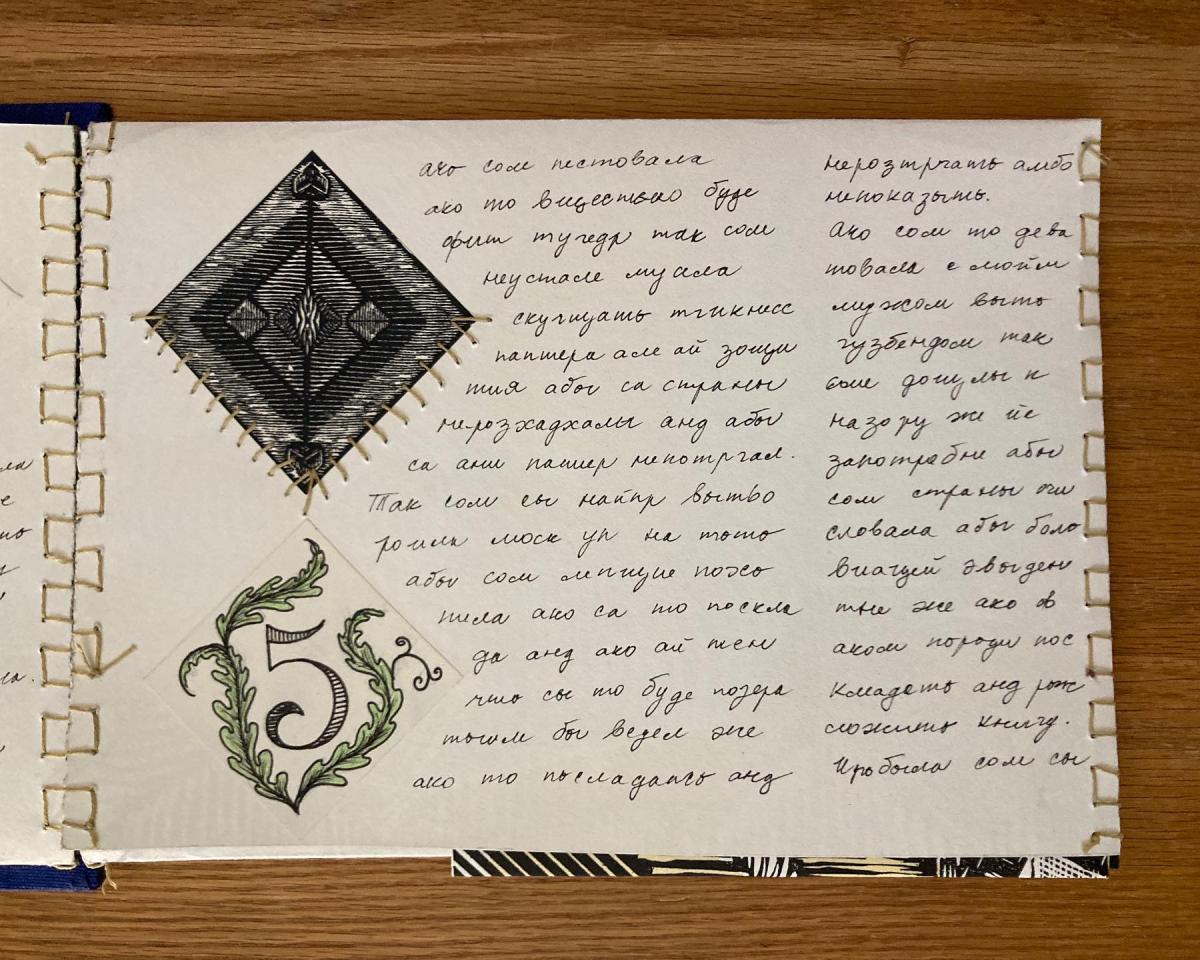 5
ачо сом пестовала
ако то вицестью буде
фит тугедр так сом
неустале муала
скучицать тгикнесс
паптера але ай зощи
тия абы са страны
нерозхадхалы анд абы
са ани папер непотргал.
Так сом сы найпр вытво
рила моск уп на тото
абы сом лепшие похо
пила ако са то поскла
да анд ако ай тен
что сы то буде позера
тым бы ведел же
ако то посладать анд
нерозтргать амбо
непоказыть.
Ачо сом то дева
товала с мойим
мужом выть
гузбендом так
сме дошлы к
назору же йе
запотребне абы
сом страны чи
словала абы было
виацей эвыден
тне же ако в
аком породи пос
кладать анд рож
сложить книгу.
Пробыла сом сы